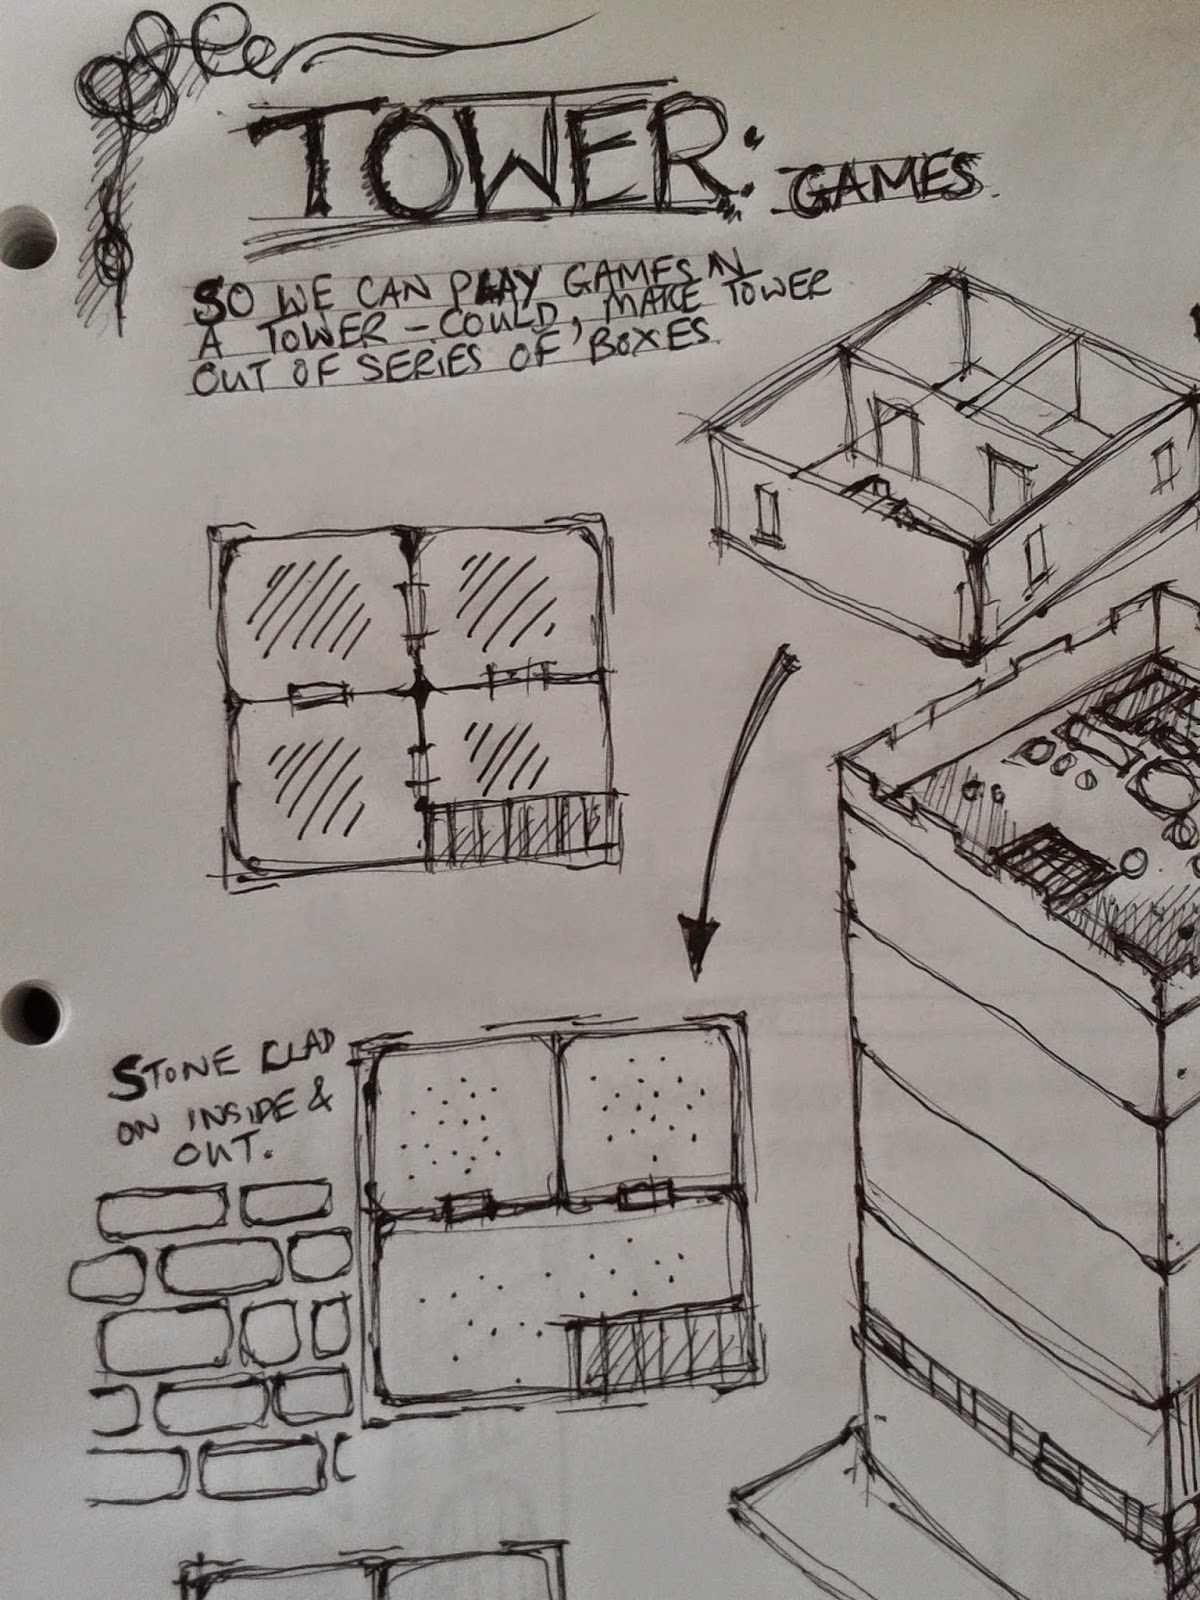 TOWER: GAMES
SO WE CAN PLAY GAMES IN
A TOWER - COULD, MAKE TOWER
OUT OF SERIES OF BOXES.
STONE CLAD
ON INSIDE &
OUT.